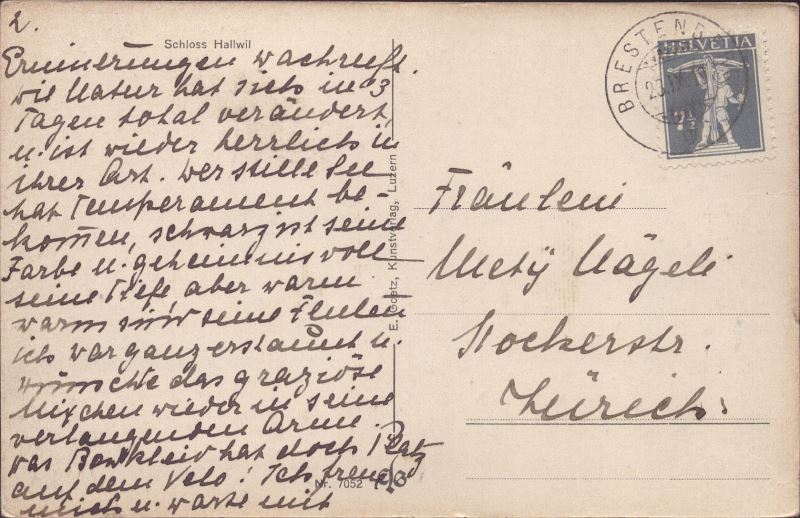 2.
Schloss Hallwil
Erinnerungen wachruft.
wie Natur hat sich in 3
Tagen total verändert
u. ist wieder herrlich in
ihrer Art. Der stille See
hat Temperament be-
kommen, schwarz ist seine
Farbe u. geheimnisvoll
seine Tiefe, aber warm
warm sind seine Fluten
ich war ganz erstaunt u.
wünschte das graziöse
Nixchen wieder in seine
verlangenden Arme.
Das Badkleid hat doch Platz
auf dem Velo! Ich freue
mich u. warte mit
E. Goetz, Kunstverlag, Luzern
Nr. 7052
HELVETIA
7½
Fräulein
Mety Nägeli
Stockerstr.
Zürich